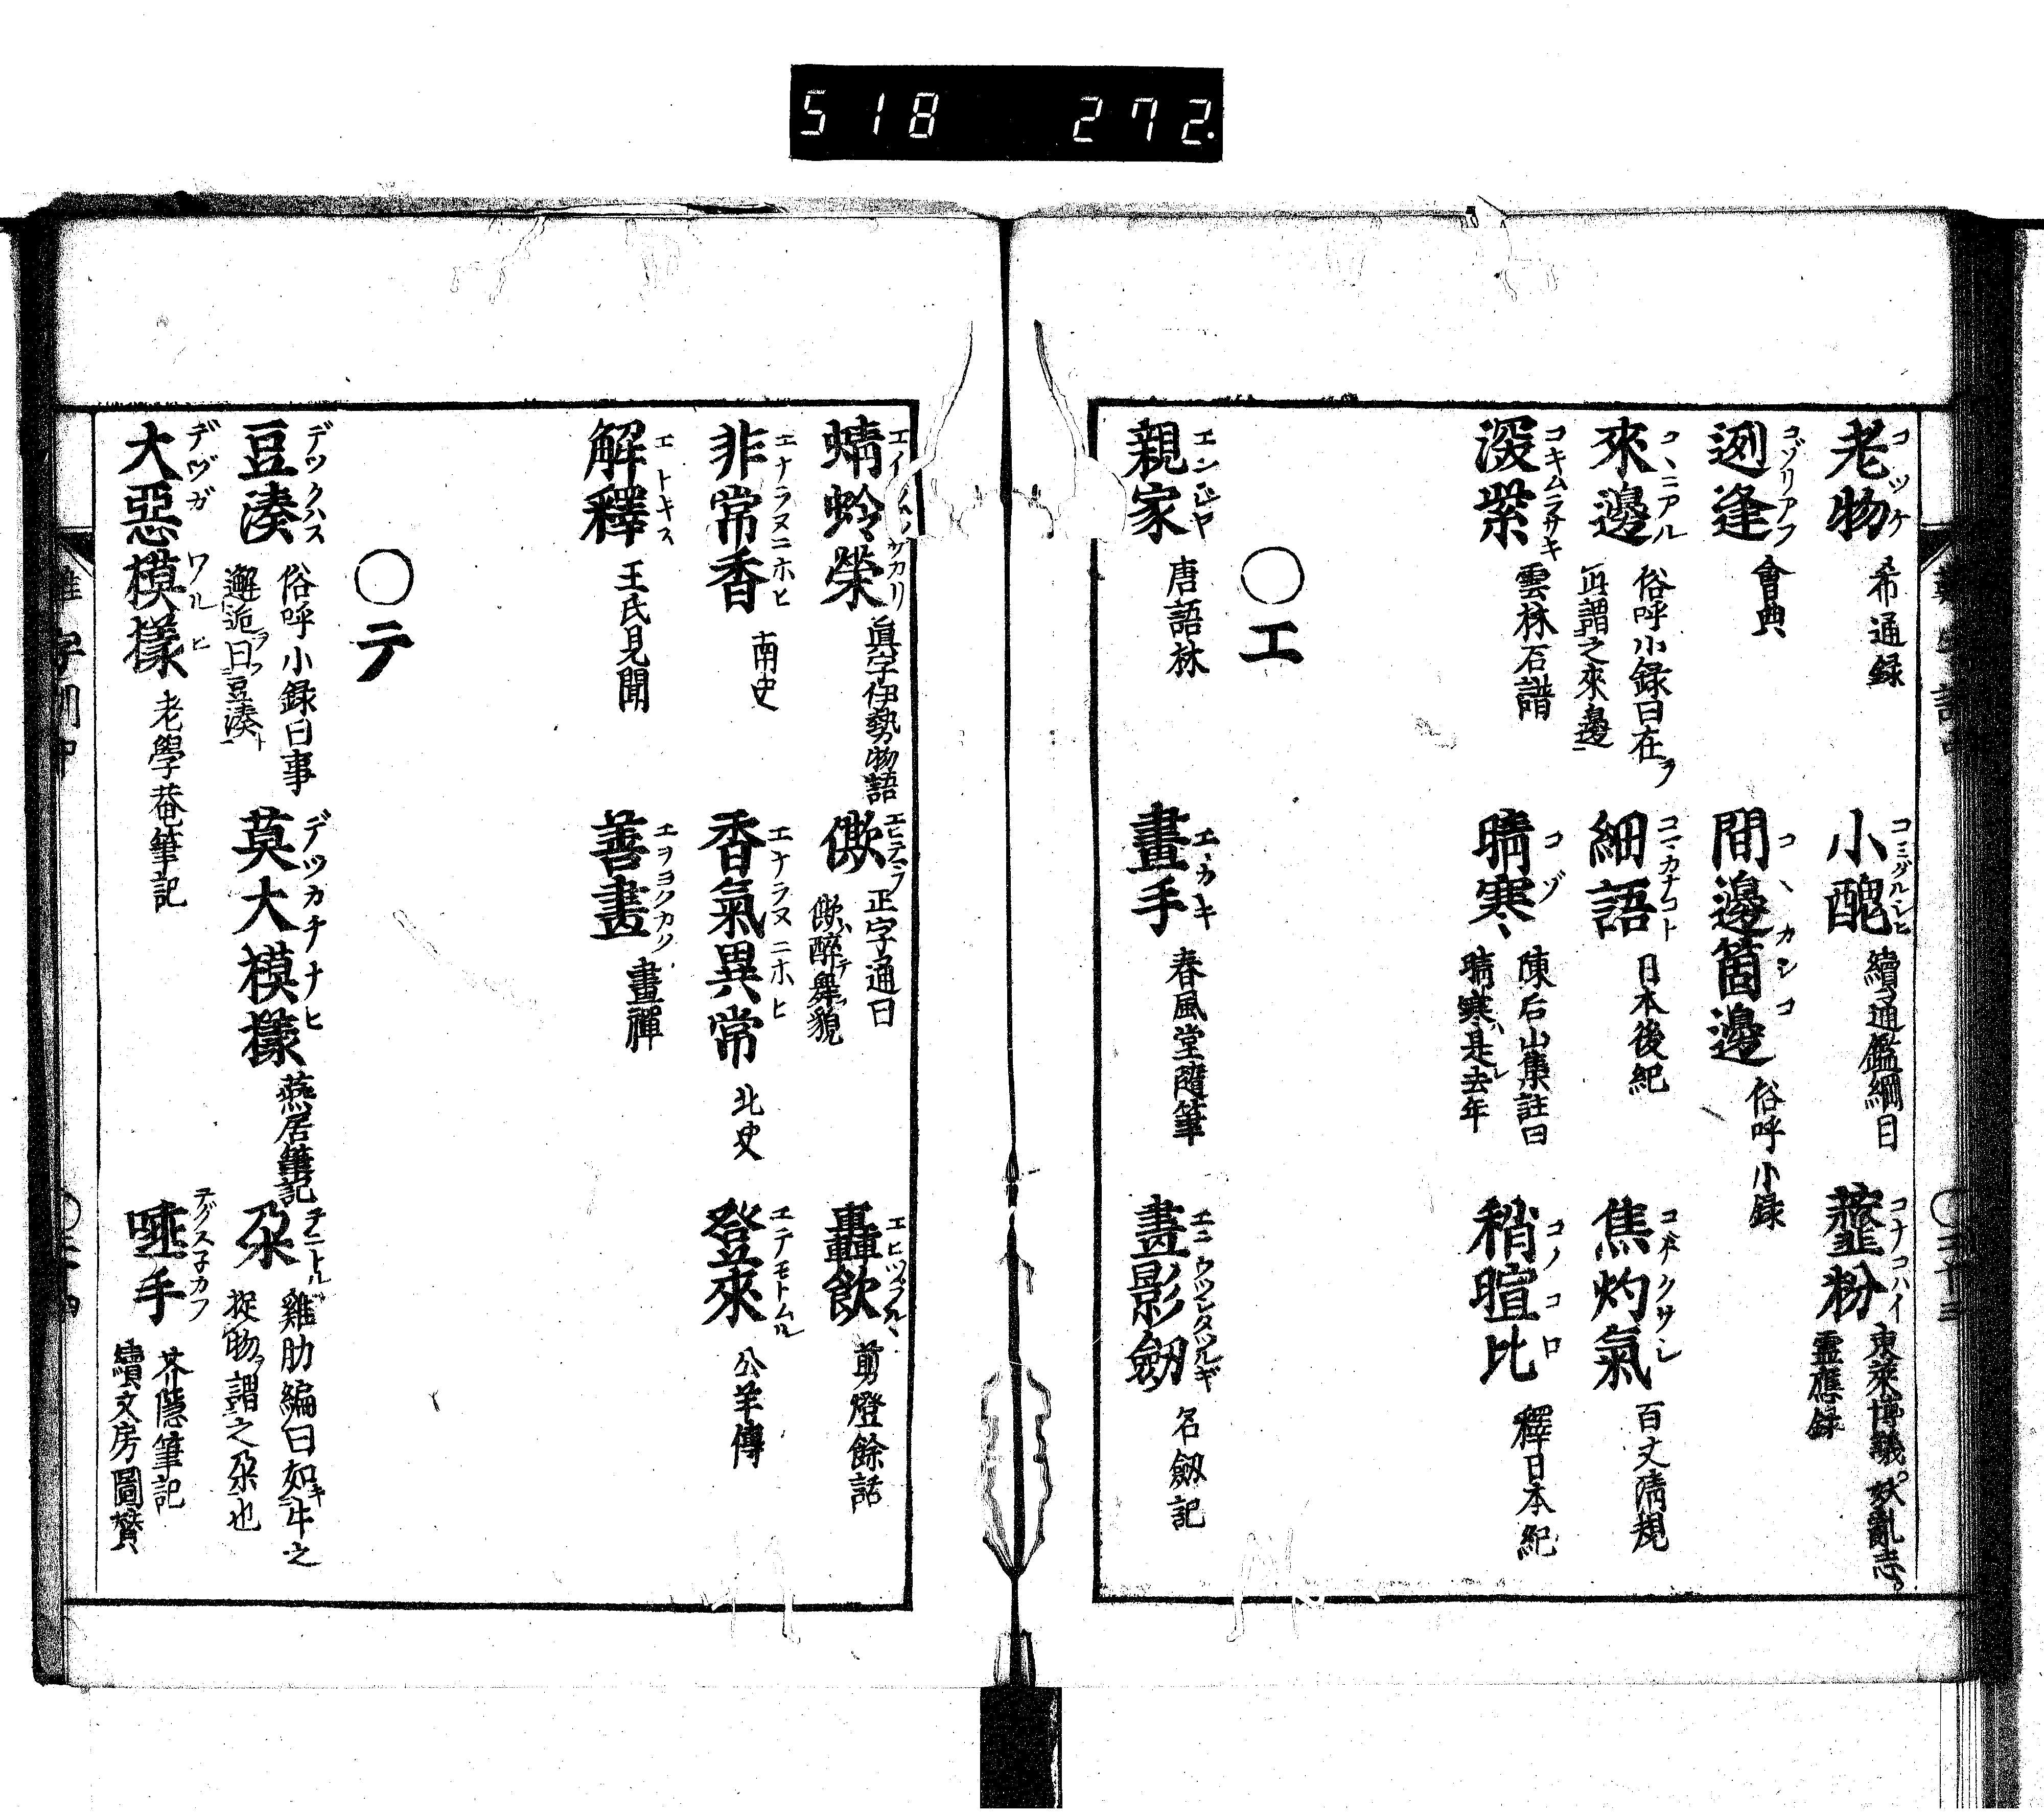 518 272.
老物 コツケ 希通録
小醜 續通鑑綱目
虀粉 コナコハイ 東萊博議。妖亂志。靈應録
逬逢 コゾリアフ 會典
間邊箇邊 コヽカシコ 俗呼小録
來邊 コヽニアル 俗呼小録曰在ヲ此謂之來邊
細語 コマカナコト 日本後紀
焦灼氣 百丈清規
深紫 コキムラサキ 雲林石譜
晴寒〻 コゾ 陳后山集註曰晴寒ハ是レ去年
稍暄比 コノコロ 釋日本紀
〇エ
親家 エンジヤ 唐語林
畫手 エヽカキ 春風堂隨筆
畫影劔 エニウツシタツルギ 名劔記
蜻蛉榮 眞字伊勢物語
僛 エヒテマフ 正字通曰僛ハ醉テ舞フ貌
轟飲 剪燈餘話
非常香 エナラヌニホヒ 南史
香氣異常 エナラヌニホヒ 北史
登來 エテモトムル 公羊傳
解釋 エトキス 王氏見聞
善畫 エヲヨクカク 畫禪
〇テ
豆湊 デツクハス 俗呼小録曰事邂逅ヲ曰フ豆湊ト
莫大模樣 デツカチナヒ 燕居筆記
朶 テニトル 雞肋編曰如キ牛之捉物ヲ謂之朶也
大惡模樣 デヅガワルヒ 老學菴筆記
唾手 芥隱筆記 續文房圖贊